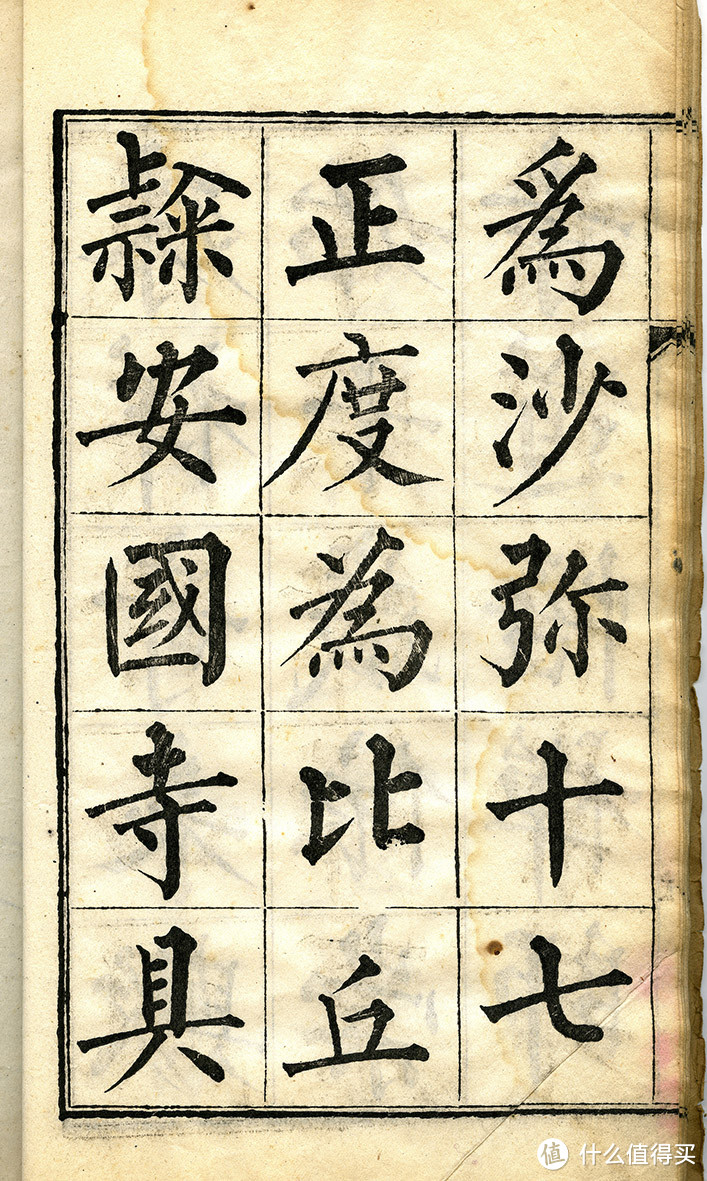 爲沙弥十七
正度為比丘
隸安國寺具
值 什么值得买